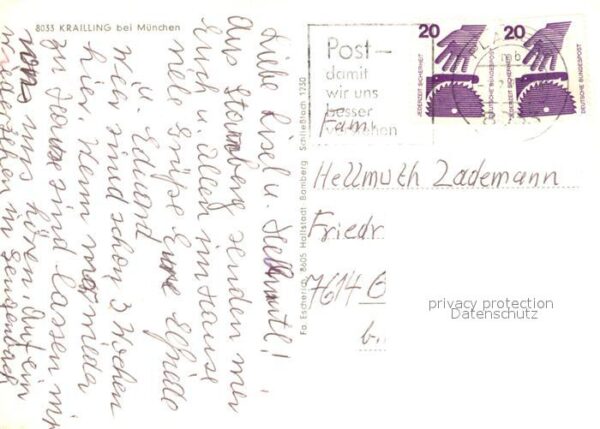 8033 KRAILLING bei München
Liebe Lisel u. Hellmuth!
Aus Starnberg senden wir
Euch u. allen im Hause
viele Grüße Eure Elfriede
u. Eduard
wir sind schon 3 Wochen
hier. Wenn wir wieder
zu Hause sind lassen wir
von uns hören. Auf ein
wiedersehen in Gengenbach
Fa. Escherich, 8605 Hallstadt Bamberg Schließfach 1230
Post –
damit
wir uns
besser
verstehen
20
JEDERZEIT SICHERHEIT
DEUTSCHE BUNDESPOST
20
JEDERZEIT SICHERHEIT
DEUTSCHE BUNDESPOST
Fam.
Hellmuth Zademann
Friedr
7614 G
b.
privacy protection
Datenschutz